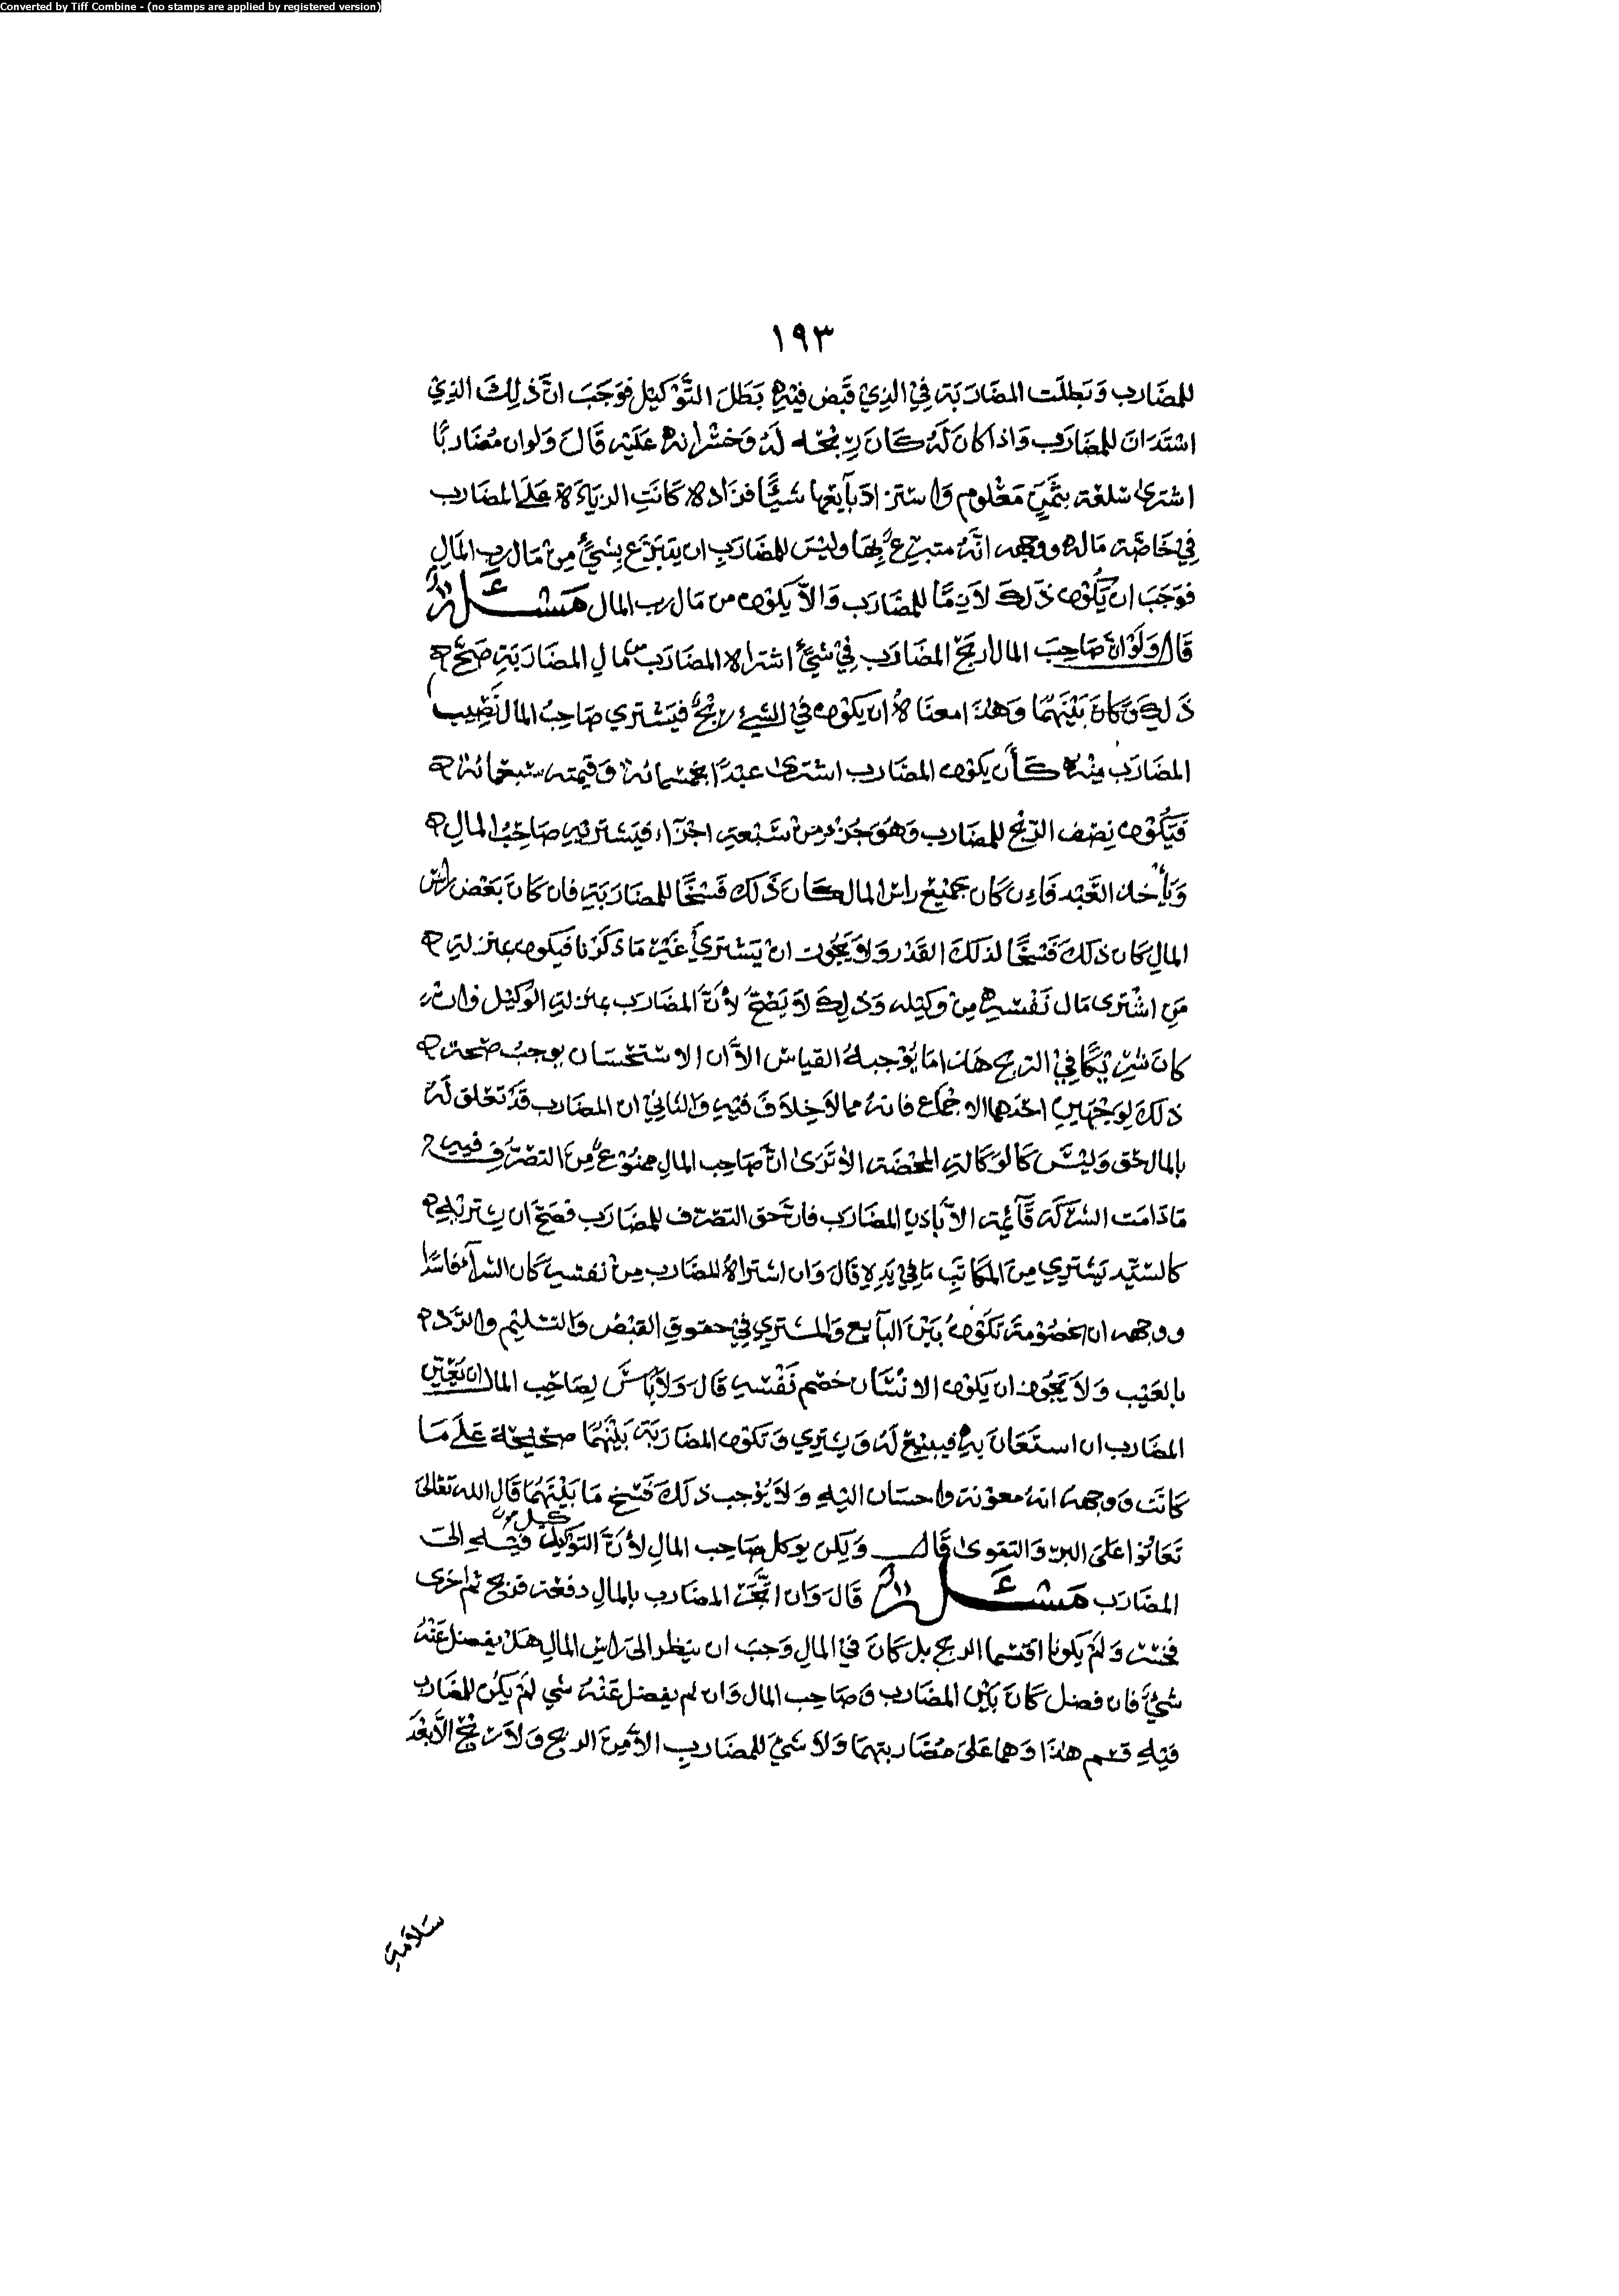 Converted by Tiff Combine - (no stamps are applied by registered version)
١٩٣
للمضَارب وَبَطلَت المضَارَبَة فِي الذِيْ قَبَض فيْهِ بَطَلَ التَّوْكيْل فوَجَبَ انَّ ذٰلِكَ الذِيْ
اسْتَدَانَ للمضَارَب وَاذا كانَ لَهُ كَانَ رِبْحُه لَهُ وَخسْرانه عَلَيْه قَالَ وَلو ان مُضَاربًا
اشترىٰ سلعَة بثَمَنٍ مَعْلوم وَاستزادَ بَآيعَها شَيْئًا فزَاده كَانَتِ الزيَادَة عَلَى المضَارب
فِي خَاصَّة مَاله ووجهه انَّهُ متبرّعٌ بِهَا وليْسَ للمضَاربِ ان يتَبَرّع بشَيْءٍ مِنْ مَال رب المَالِ
فوَجَبَ ان يَّكُوْن ذٰلكَ لازِمًا للمضَارَب وَالاّ يَكوْن من مَال رب المال مَسْئَلة
قَالَ وَلَوْ انَّ صَاحِبَ المال اربحَ المضَارَب فِيْ شَيْءٍ اشتراه المضَارَب من مال المضَارَبَةِ صَحَّ
ذٰلكَ وَكانَ بَيْنَهُمَا وَهٰذَا معنَاهُ ان يكوْن فيْ الشيْ ربْحٌ فيَشْتري صَاحِبُ المال نَصِيْب
المضَارَب مِنْه كَأن يكوْن المضَارب اشترىٰ عبْدًا بخمْسمائة وَقيمته سَبعمائة
فَيَكُوْن نِصْف الرِّبْح للمضَارب وَهُوَ جُزْء مِنْ سَبْعةِ اجْزَآء فيَشتريْهِ صَاحِبُ المالِ
وَيَأخذ العَبْد فَاِن كَان بجميْع راس المال كَانَ ذٰلكَ فَسْخًا للمضَارَبَةِ فان كَانَ بَعْض راس
المالِ كَان ذٰلكَ فَسْخًا لذلكَ القَدْر وَلا يَجُوْز انْ يَشْتَريَ غَيْر مَا ذكَرْنا فيَكوْن بمنزلةِ
مَنِ اشْترى مَال نَفْسهِ مِنْ وَكيْله وَذٰلِكَ لاَ يَصِحُّ لأنَّ المضَارَب بمنزلةِ الوَكيْل وَان
كانَ شرِيْكًا فيْ الربح هٰذا مَا يُوْجبهُ القيَاس الاّ ان الاسْتحْسَان يوجبُ صحَّة
ذٰلكَ لِوَجْهَيْنِ احَدهما الاجْمَاع فانه مما لاَ خِلاَفَ فيْهِ وَالثانيْ ان المضَارب قَدْ تعَلق لَهُ
بالمال حَق وَليْسَ كَالوَكَالةِ المحْضَة الا تَرَىٰ انَّ صَاحِب المالِ ممنُوْعٌ مِنَ التصَرّفِ فيه
مَا دَامَت الشركَة قَآئمَة الاّ باذنِ المضَارَب فان حَق التصَرّف للمضَارَب فصَحَّ ان يشتريْهِ
كالسَّيِّد يَشتَرِي مِنَ المكَاتَبِ مَا فيْ يَدِهِ قَالَ وَان اشتراهُ للمضَارَب مِنْ نفسه كَان الشرآء فاسدًا
ووجهه ان الخصُوْمة تَكوْنُ بَيْنَ البَآيع وَالمشتري فيْ حقوقِ القبْض وَالتسْليْم وَالرَّد
بالعَيْب وَلاَ يَجُوْز ان يكوْن الانْسَان خصْم نَفْسهِ قَالَ وَلاَ بَأسَ لِصَاحِب المال ان يُعيْنَ
المضَارب ان استَعَانَ بهِ فيبيْعَ لَهُ وَيشتَرِي وَتكوْن المضَارَبَة بَيْنَهُمَا صَحيْحَة عَلَى مَا
كَانَت وَوجهه انهُ معوْنة وَاحسَان اليْهِ وَلاَ يُوْجب ذٰلكَ فَسْخ مَا بَيْنَهُمَا قَالَ الله تَعَالىٰ
تَعَاوَنُوْا عَلى البرّ وَالتقوىٰ قَالَ وَيكن يوكل صَاحِب المالِ لأنَّ التوْكيل فيْهِ الىَ
المضَارَب مَسْئَلة قَالَ وَان اتَّجَرَ المضَارب بالمالِ دفعَة فربح ثم اخرى
فخسِرَ وَلَمْ يكونا اقتسَما الربح بل كَانَ فيْ المالِ وَجبَ ان ينظر الىٰ رَاسِ المالِ هَل يفضل عَنْهُ
شَيْءٌ فان فضل كَانَ بَيْن المضَارب وَصَاحِب المال وَان لم يفضل عَنْهُ شي لَمْ يكن للمضَارب
فيْهِ قسم هٰذا وَهما عَلىٰ مُضَاربتهما وَلاَ شَيْ للمضَارب الاّ مِنَ الربح وَلاَ ربْحَ الاّ بَعْدَ
سَلاَمَةِ